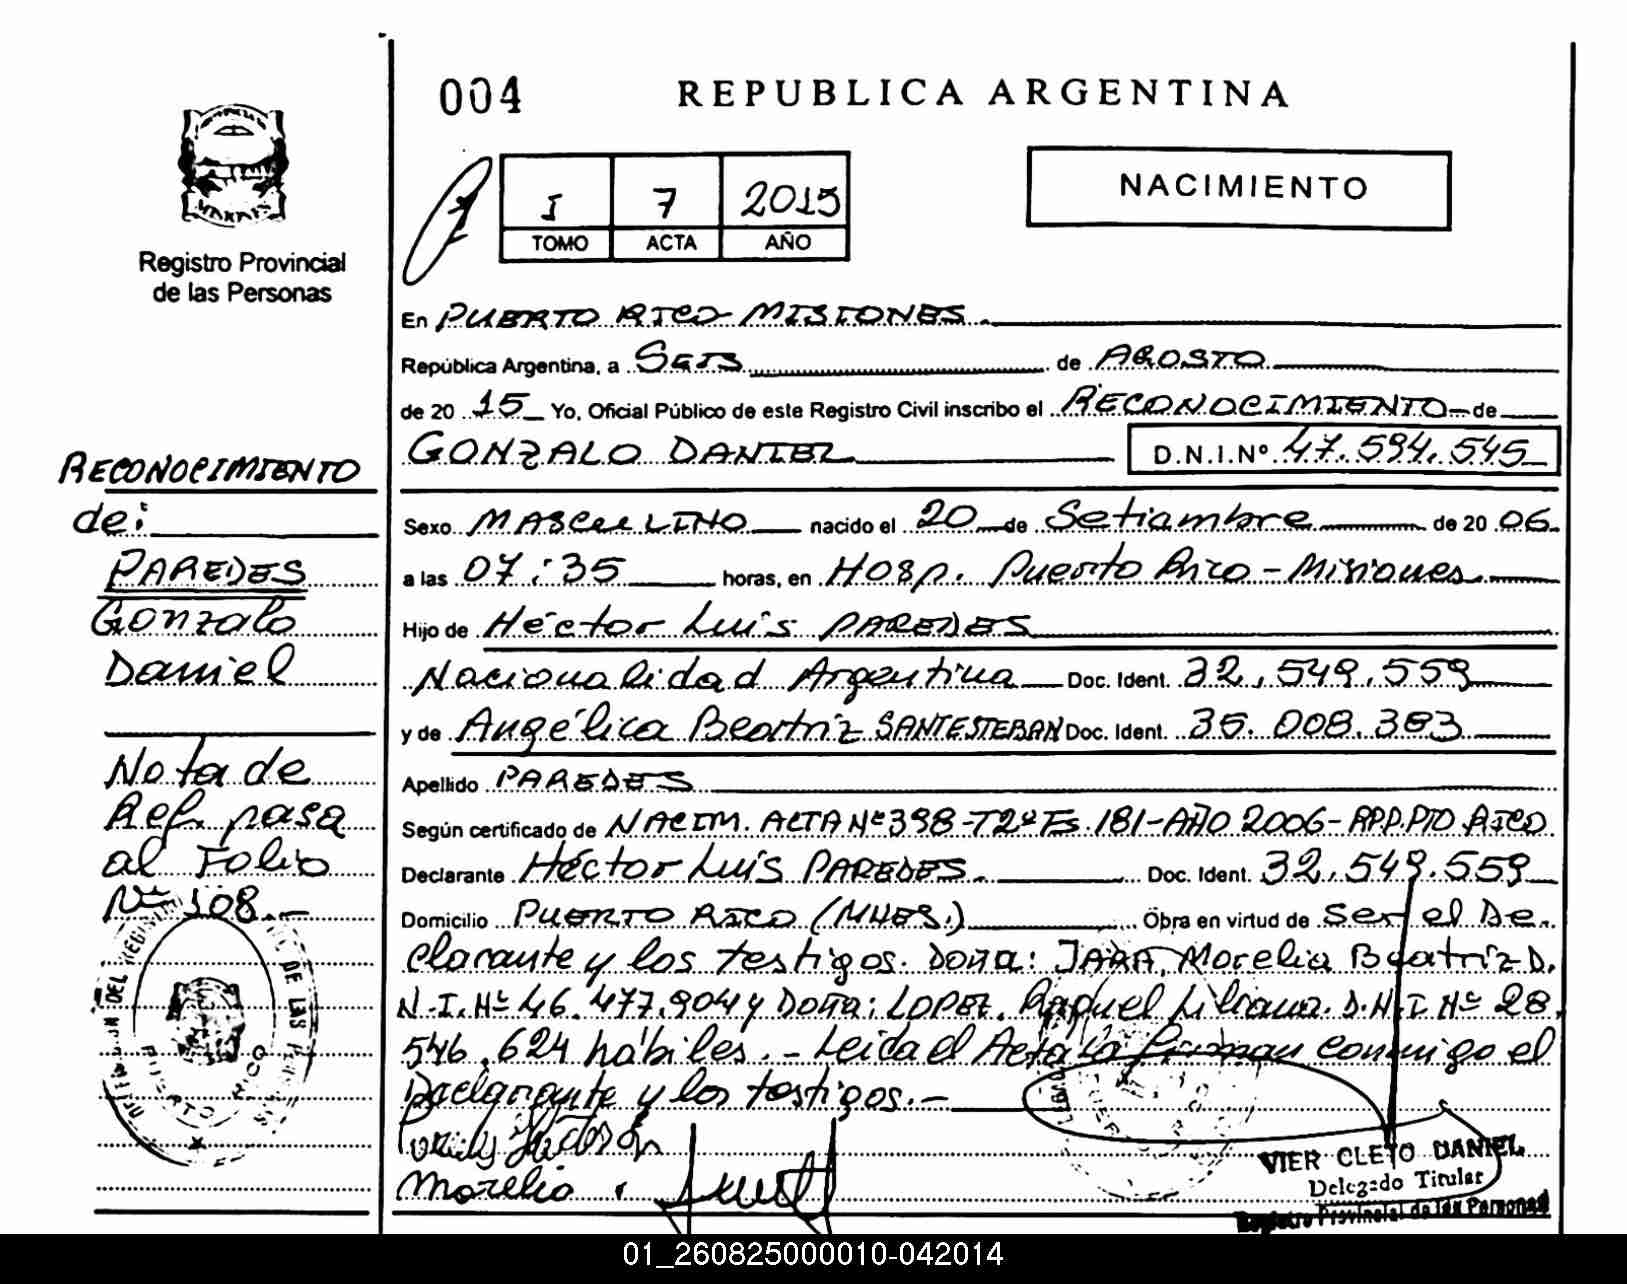 004
REPUBLICA ARGENTINA
I 7 2015
TOMO ACTA AÑO
NACIMIENTO
Registro Provincial
de las Personas
En PUERTO RICO - MISIONES.
República Argentina, a SEIS de AGOSTO
de 20 15 Yo, Oficial Público de este Registro Civil inscribo el RECONOCIMIENTO de
GONZALO DANIEL D.N.I.Nº 47.594.545
Sexo MASCULINO nacido el 20 de Setiembre de 20 06.
a las 07:35 horas, en Hosp. Puerto Rico - Misiones.
Hijo de Héctor Luis PAREDES
Nacionalidad Argentina Doc. Ident. 32.549.559
y de Angélica Beatriz SANTESTEBAN Doc. Ident. 35.008.383
Apellido PAREDES
Según certificado de NACIM. ACTA Nº 398-T2º Fs. 181-AÑO 2006- RPP. PTO RICO.
Declarante Héctor Luis PAREDES. Doc. Ident. 32.549.559
Domicilio PUERTO RICO (MNES.) Obra en virtud de Ser el De-
clarante y los testigos. Doña: JARA, Morelia Beatriz D.
N.I. Nº 46.477.904 y Doña: LOPEZ, Raquel Liliana. D.N.I. Nº 28.
546.624 hábiles. - Leída el Acta la firman conmigo el
Declarante y los testigos. -
Morelia
VIER CLETO DANIEL
Delegado Titular
Registro Provincial de las Personas
RECONOCIMIENTO
de:
PAREDES
Gonzalo
Daniel
Nota de
Ref. pasa
al Folio
Nº 108.-
PUERTO RICO
01_260825000010-042014